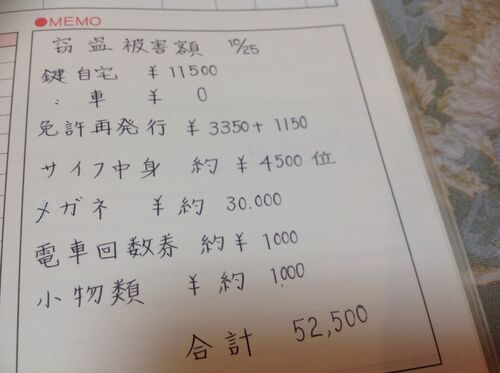 ●MEMO
窃盗被害額 10/25
鍵自宅 ¥11500
〃 車 ¥ 0
免許再発行 ¥3350+1150
サイフ中身 約¥4500位
メガネ ¥約 30.000
電車回数券 約¥1000
小物類 ¥約 1,000
合計 52,500